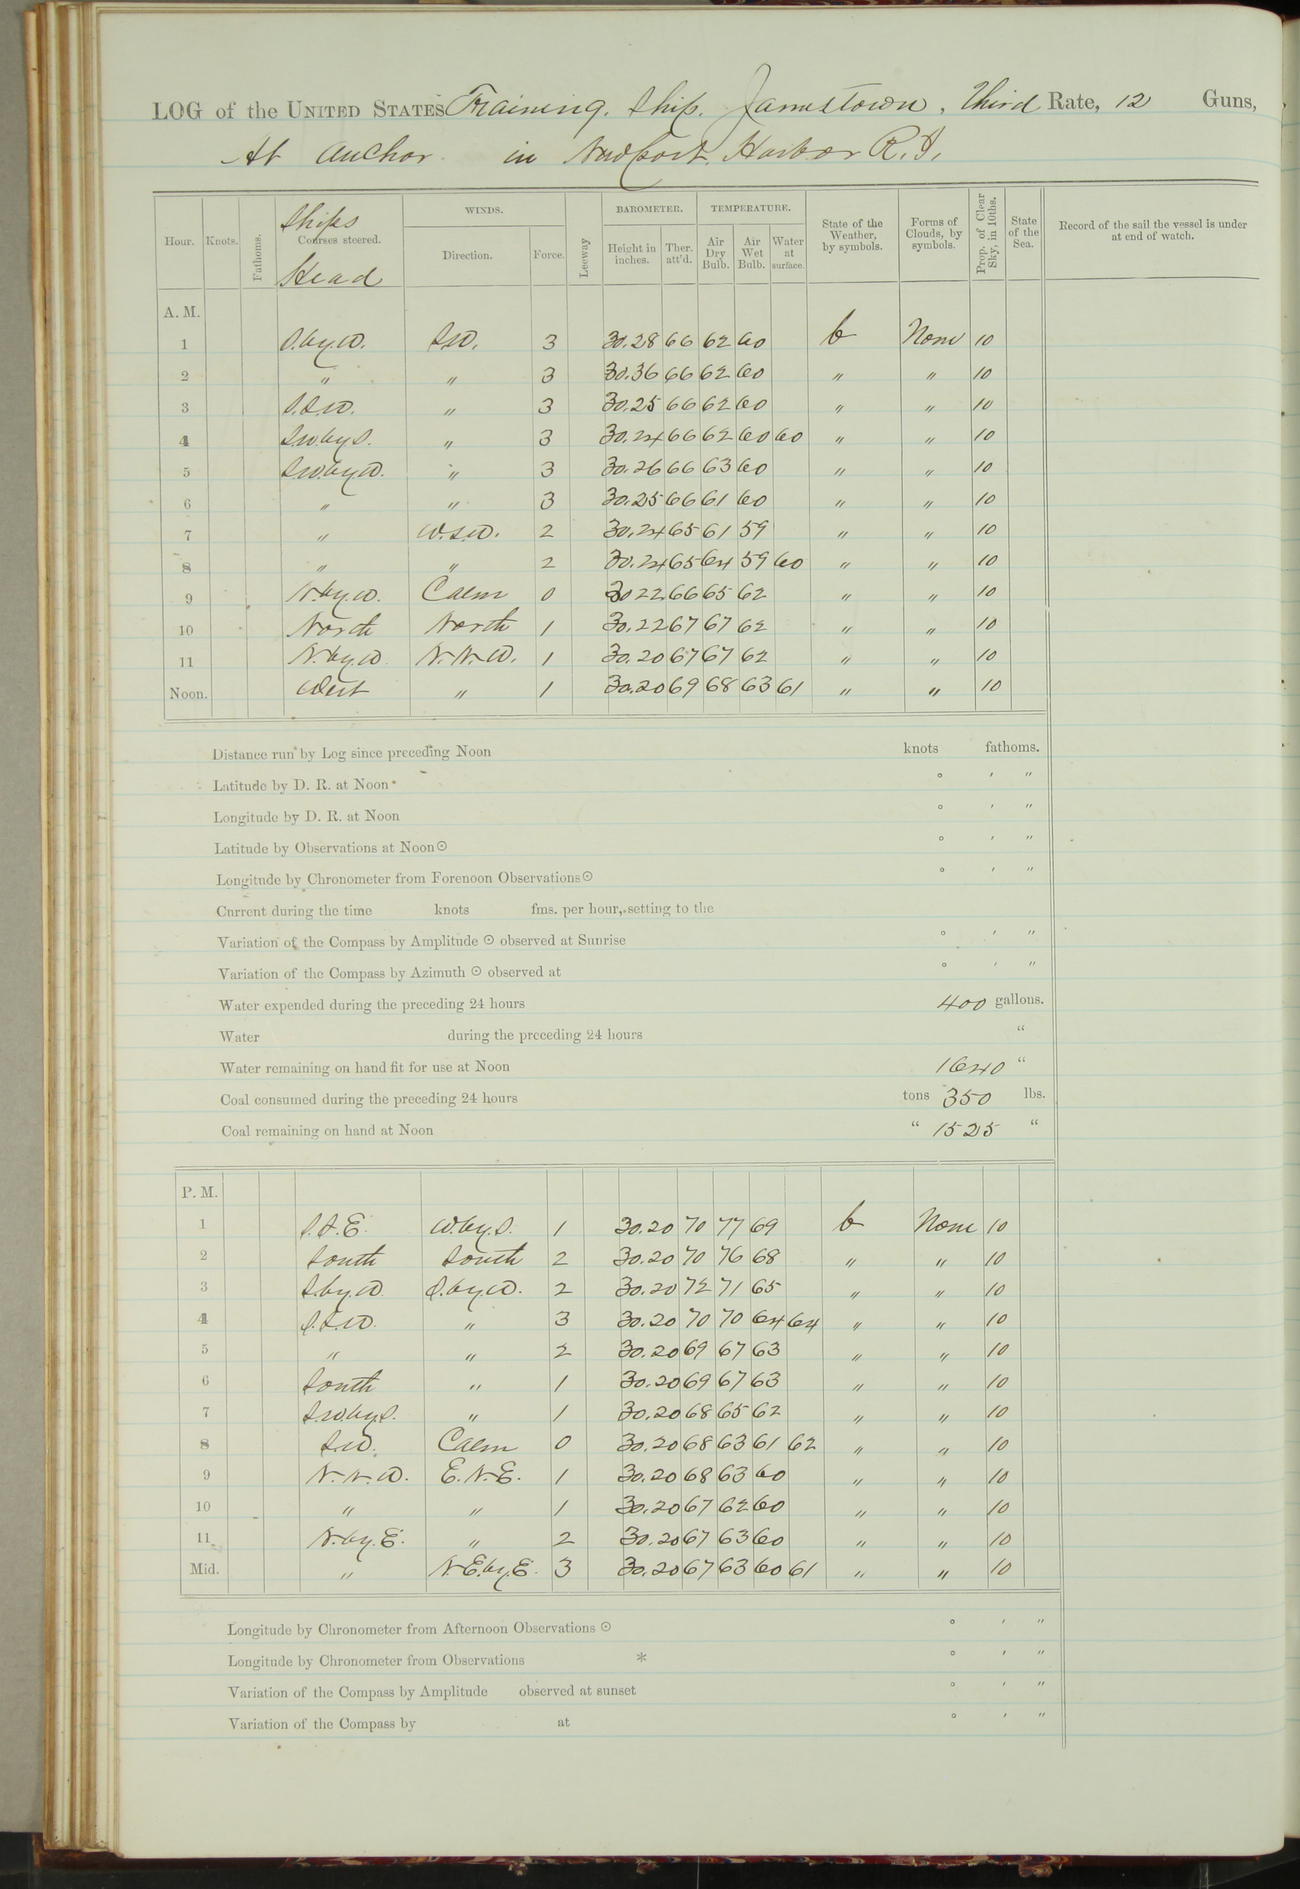 LOG of the UNITED STATES Training Ship Jamestown, Third Rate, 12 Guns,
At anchor in Newport Harbor R.I.
Hour. Knots. Fathoms. Ships Courses steered. Head WINDS. Direction. Force. Leeway BAROMETER. Height in inches. Ther. att'd. TEMPERATURE. Air Dry Bulb. Air Wet Bulb. Water at surface. State of the Weather, by symbols. Forms of Clouds, by symbols. Prop. of Clear Sky, in 10ths. State of the Sea. Record of the sail the vessel is under at end of watch.
A. M.
1 S.by.W. S.W. 3 30.28 66 62 60 b None 10
2 " " 3 30.36 66 62 60 " " 10
3 S.S.W. " 3 30.25 66 62 60 " " 10
4 S.W.by.S. " 3 30.24 66 62 60 60 " " 10
5 S.W.by.W. " 3 30.26 66 63 60 " " 10
6 " " 3 30.25 66 61 60 " " 10
7 " W.S.W. 2 30.24 65 61 59 " " 10
8 " " 2 30.24 65 64 59 60 " " 10
9 N.by.W. Calm 0 30 22 66 65 62 " " 10
10 North North 1 30.22 67 67 62 " " 10
11 N.by.W N.N.W. 1 30.20 67 67 62 " " 10
Noon. West " 1 30.20 69 68 63 61 " " 10
Distance run by Log since preceding Noon knots fathoms.
Latitude by D. R. at Noon ° ′ ″
Longitude by D. R. at Noon ° ′ ″
Latitude by Observations at Noon ☉ ° ′ ″
Longitude by Chronometer from Forenoon Observations ☉ ° ′ ″
Current during the time knots fms. per hour, setting to the
Variation of the Compass by Amplitude ☉ observed at Sunrise ° ′ ″
Variation of the Compass by Azimuth ☉ observed at ° ′ ″
Water expended during the preceding 24 hours 400 gallons.
Water during the preceding 24 hours "
Water remaining on hand fit for use at Noon 1640 "
Coal consumed during the preceding 24 hours tons 350 lbs.
Coal remaining on hand at Noon " 1525 "
P. M.
1 S.S.E. W.by.S. 1 30.20 70 77 69 b None 10
2 South South 2 30.20 70 76 68 " " 10
3 S.by.W. S.by.W. 2 30.20 72 71 65 " " 10
4 S.S.W. " 3 30.20 70 70 64 64 " " 10
5 " " 2 30.20 69 67 63 " " 10
6 South " 1 30.20 69 67 63 " " 10
7 S.W.by.S. " 1 30.20 68 65 62 " " 10
8 S.W. Calm 0 30.20 68 63 61 62 " " 10
9 N.N.W. E.N.E. 1 30.20 68 63 60 " " 10
10 " " 1 30.20 67 62 60 " " 10
11 N.by.E. " 2 30.20 67 63 60 " " 10
Mid. " N.E.by.E. 3 30.20 67 63 60 61 " " 10
Longitude by Chronometer from Afternoon Observations ☉ ° ′ ″
Longitude by Chronometer from Observations * ° ′ ″
Variation of the Compass by Amplitude observed at sunset ° ′ ″
Variation of the Compass by at ° ′ ″